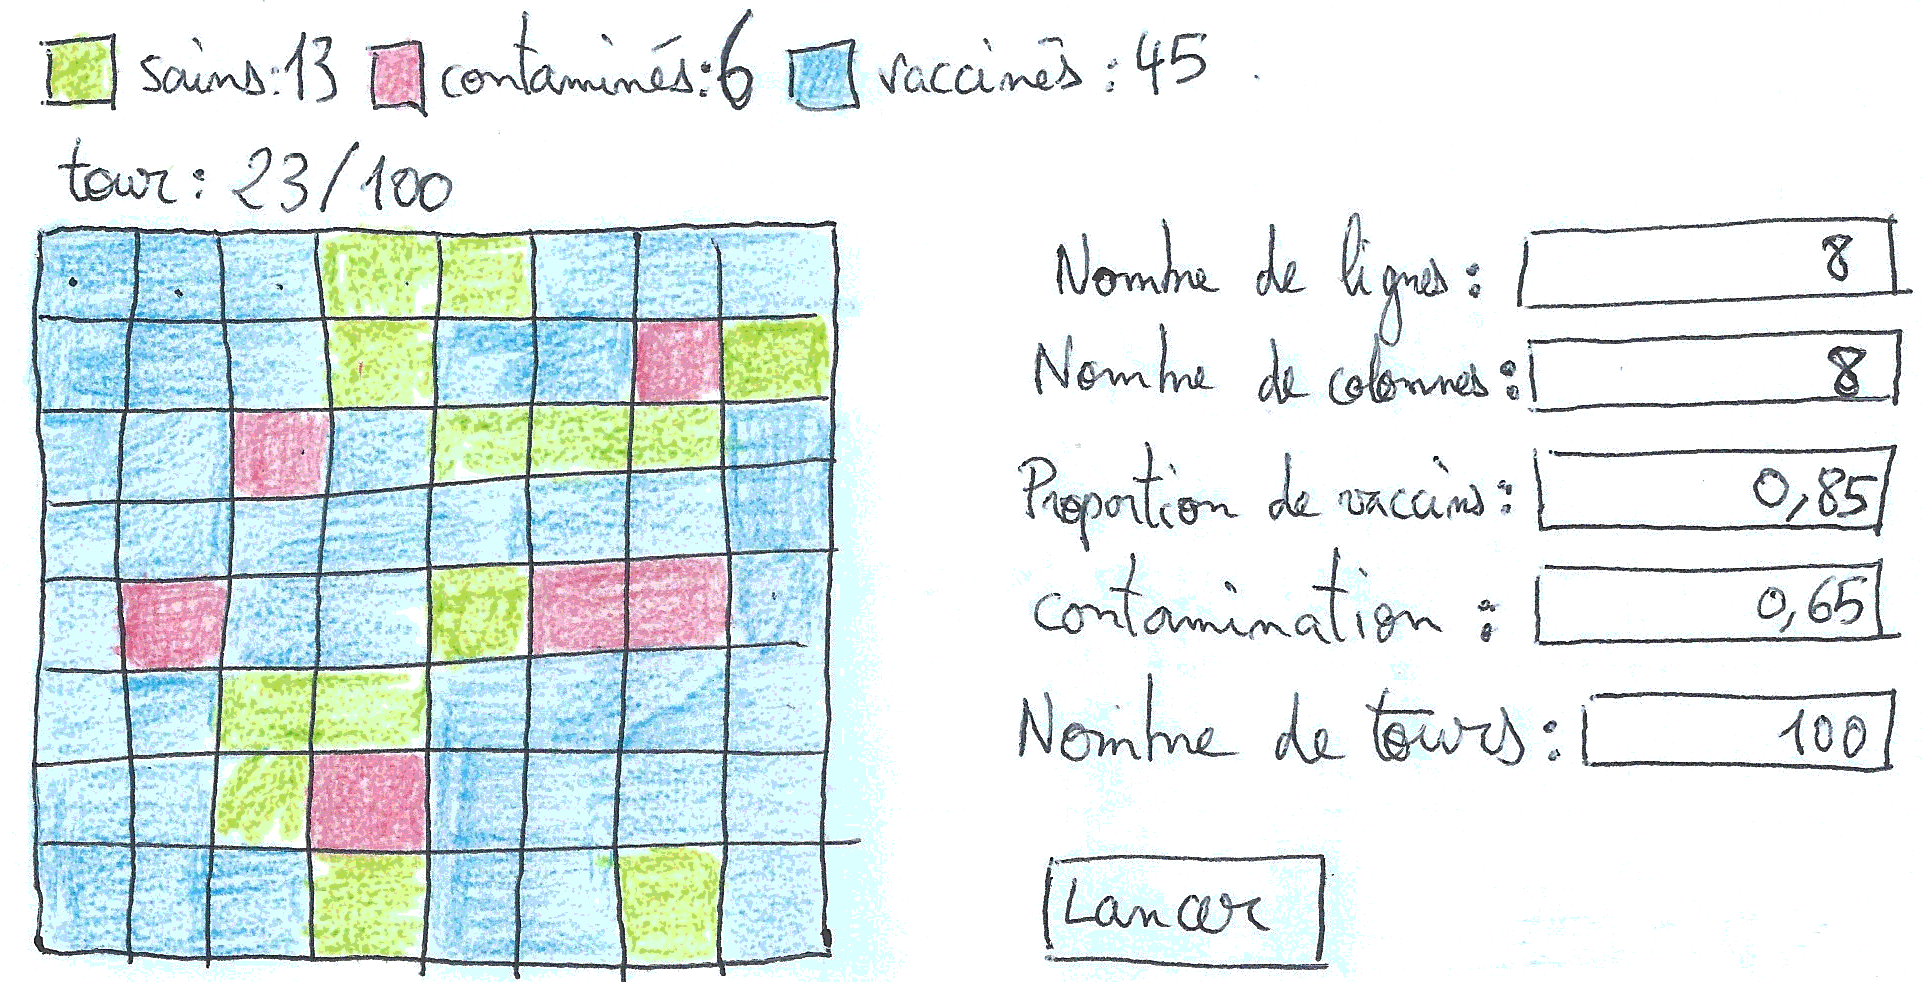 sains: 13 contaminés: 6 vaccinés : 45
tour: 23/100
Nombre de lignes: 8
Nombre de colonnes: 8
Proportion de vaccins: 0,85
contamination : 0,65
Nombre de tours: 100
Lancer